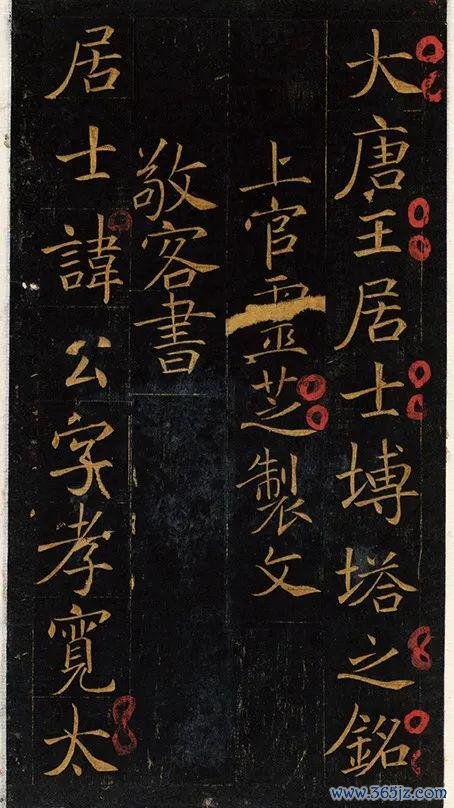 大唐王居士塼塔之銘
上官靈芝製文
敬客書
居士諱公字孝寬太
www.365jz.com